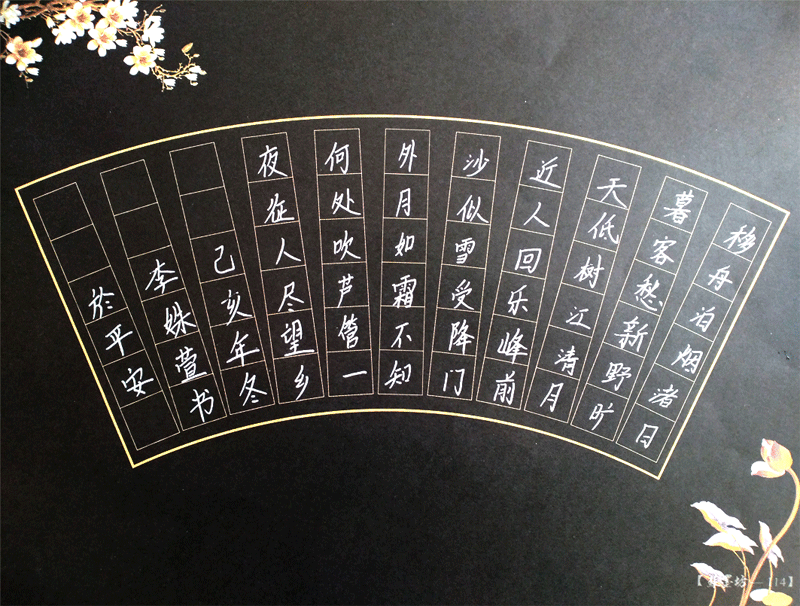 移舟泊烟渚日
暮客愁新野旷
天低树江清月
近人回乐峰前
沙似雪受降门
外月如霜不知
何处吹芦管一
夜征人尽望乡
己亥年冬
李姝萱书
於平安